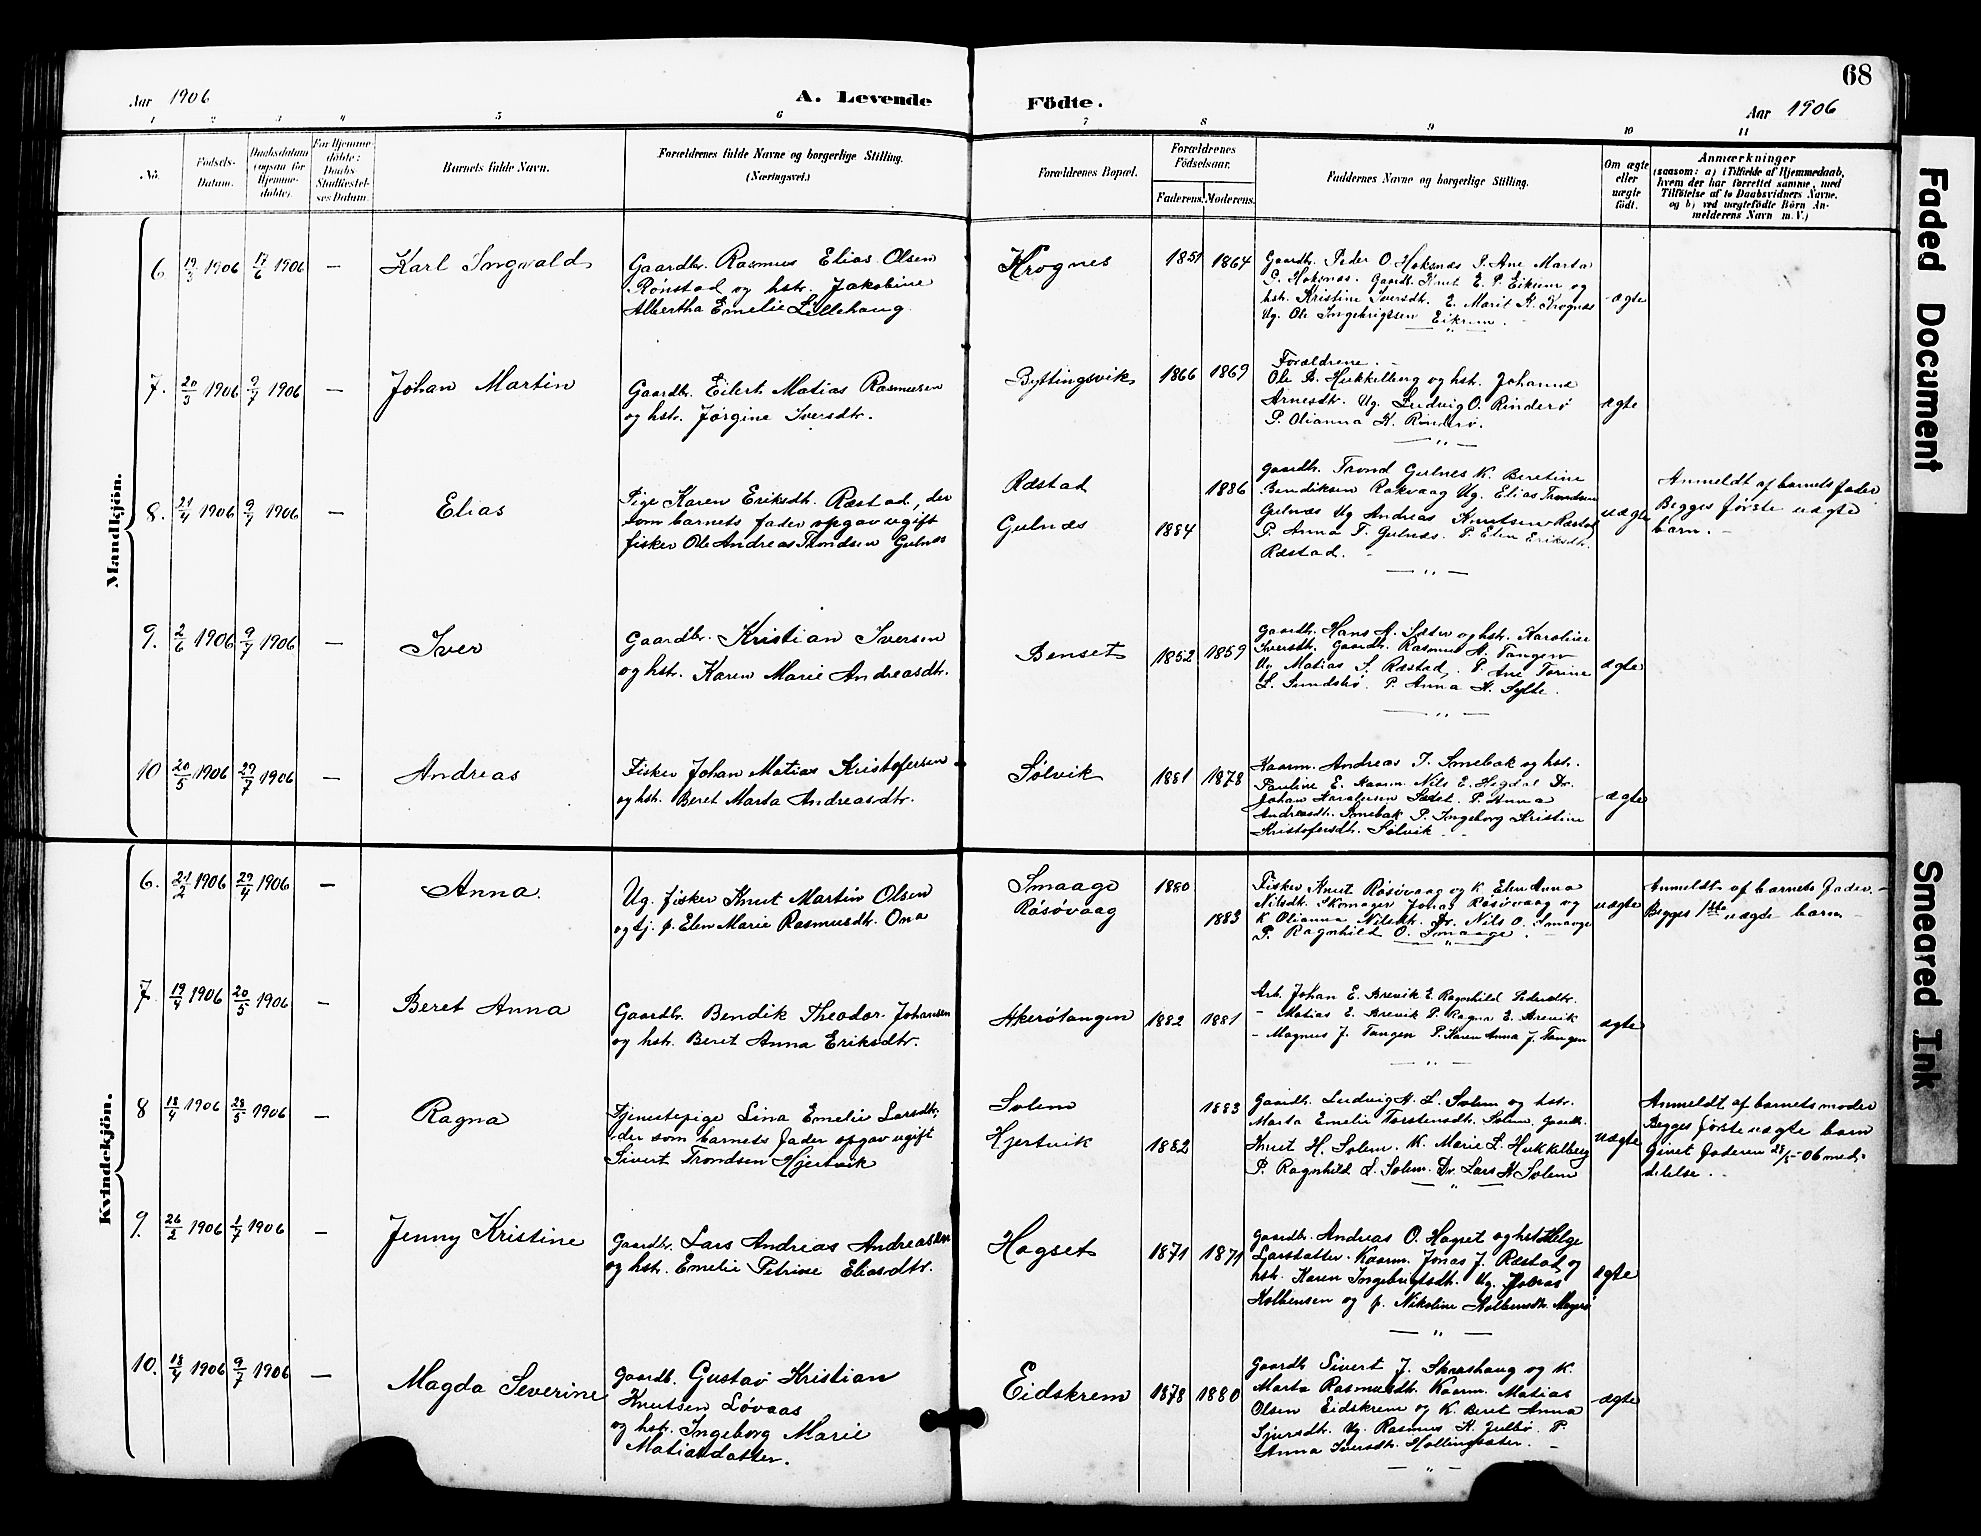 68
Aar 1906
A. Levende
Födte.
Aar 1906
1 2 3 4 5 6 7 8 9 10 11
No.
Fødsels-
Datum.
Daabsdatum
(ogsaa for
Hjemme-
døbte).
For Hjemme-
døbte:
Daabs-
Stadfæstel-
ses Datum.
Barnets fulde Navn.
Forældrenes fulde Navne og borgerlige Stilling.
(Næringsvei.)
Forældrenes Bopæl.
Forældrenes
Födselsaar.
Faderens. Moderens.
Faddernes Navne og borgerlige Stilling.
Om ægte
eller
uægte
født.
Anmærkninger
(saasom: a) i Tilfælde af Hjemmedaab,
hvem der har forrettet samme, med
Tilføielse af to Daabsvidners Navne.
og b) ved uægtefødte Börn An-
melderens Navn m. V.)
Mandkjön.
6 19/3 1906 17/6 1906 — Karl Ingvald
Gaardbr. Rasmus Elias Olsen
Rønstad og hstr. Jakobine
Albertha Emelie Lillehaug
Krognes 1851 1864
Gaardbr. Peder O. Hoksnæs P. Ane Marta
G. Hoksnæs. Gaardb. Knut E. P. Eikrem og
hstr. Kristine Iversdt. E. Marit K. Krognæs
Ug. Ole Ingebrigtsen Eikrem.
ægte
7. 20/3 1906 9/7 1906 — Johan Martin
Gaardbr. Eilert Matias Rasmussen
og hstr. Jørgine Iversdtr.
Byttingsvik 1866 1869
Forældrene.
Ole A. Hukkelberg og hst. Johanne
Arnesdtr. Ug. Ludvig O. Rinderø
P. Olianna K. Rinderø.
ægte
8. 21/4 1906 9/7 1906 — Elias
Pige Karen Eriksdt. Ræstad, der
som barnets fader opgav ugift
fisker Ole Andreas Trondsen Gulnæs
Ræstad 1886
Gulnæs 1884
Gaardb. Trond Gulnes K. Beretine
Bendiksen Rakvaag Ug. Elias Trondsen
Gulnæs Ug Andreas Knutsen Ræstad
P. Anna T. Gulnæs. P. Elen Eriksdtr.
Ræstad.
uægte
Anmeldt af barnets fader
Begges første uægte
barn.
9. 2/6 1906 9/7 1906 — Iver
Gaardbr. Kristian Iversen
og hstr. Karen Marie Andreasdtr.
Benset 1852 1859
Gaardb. Hans A. Sæter og hst. Karoline
Iversdt. Gaardb. Rasmus A. Tangen
Ug. Matias S. Ræstad, P. Ane Torine
L. Sundsbø. P. Anna H. Sylte.
ægte
10 20/5 1906 29/7 1906 — Andreas
Fisker Johan Matias Kristofersen
og hst. Beret Marta Andreasdtr.
Sølvik 1881 1878
Kaarm. Andreas T. Sonebak og hst.
Pauline E. Kaarm. Nils E. Hegdal Dr.
Johan Karolusen Sæet. P. Anna
Andreasdt. Sonebak P. Ingeborg Kristine
Kristofersdt. Sølvik
ægte
Kvindekjön.
6. 21/2 1906 29/4 1906 — Anna.
Ug. fisker Knut Martin Olsen
og tj. p. Elen Marie Rasmusdt. Ona
Smaage 1880
Røsøvaag 1883
Fisker Knut Røsøvaag og K. Elen Anna
Nilsdt. Skomager Jonas Røsøvaag og
K Olianna Nilsdt. Dr. Nils O. Smaage
P. Ragnhild O. Smaage.
uægte
Anmeldt af barnets fader.
Begges 1ste uægte barn
7 19/4 1906 20/5 1906 — Beret Anna
Gaardbr. Bendik Theodor Johansen
og hstr. Beret Anna Eriksdtr.
Akerøtangen 1882 1881
Arb. Johan E. Brevik E. Ragnhild Pedersdtr.
- Matias E. Brevik P. Ragna E. Brevik
- Magnus J. Tangen P. Karen Anna J. Tangen
ægte
8 18/4 1906 28/5 1906 — Ragna
Tjenestepige Lina Emelie Larsdtr.
der som barnets fader opgav ugift
Sivert Trondsen Hjertvik
Solem 1883
Hjertvik 1882
Gaardb. Ludvig H. L. Solem og hst.
Marta Emelie Torstensdt. Solem, Gaardb.
Knut H. Solem. K. Marie L. Hukkelberg
P. Ragnhild L. Solem. Dr. Lars H. Solem
uægte
Anmeldt af barnets moder
Begges første uægte barn
Givet faderen 28/5 06 med-
delelse.
9. 26/2 1906 1/7 1906 — Jenny Kristine
Gaardbr. Lars Andreas Andreassen
og hst. Emelie Petrine Eliasdtr.
Hagset 1871 1871
Gaardbr. Andreas O. Hagset og hst Helge
Larsdatter. Kaarm. Jonas J. Ræstad og
hst. Karen Ingebrigtsdt. Ug. Johan
Kolbensen og p. Nikoline Kolbensdt. Magerø
ægte
10. 18/4 1906 9/7 1906 — Magda Severine
Gaardb. Gustav Kristian
Knutsen Løvaas
og hst. Ingeborg Marie
Matiasdatter.
Eidskrem 1878 1880
Gaardb Sivert J. Skarshaug og K.
Marta Rasmusdt. Kaarm. Matias
Olsen Eidskrem og K. Beret Anna
Sjursdt. Ug. Rasmus K. Julbø. P.
Anna Iversdt. Hollingsæter.
ægte
Faded Document
Smeared Ink